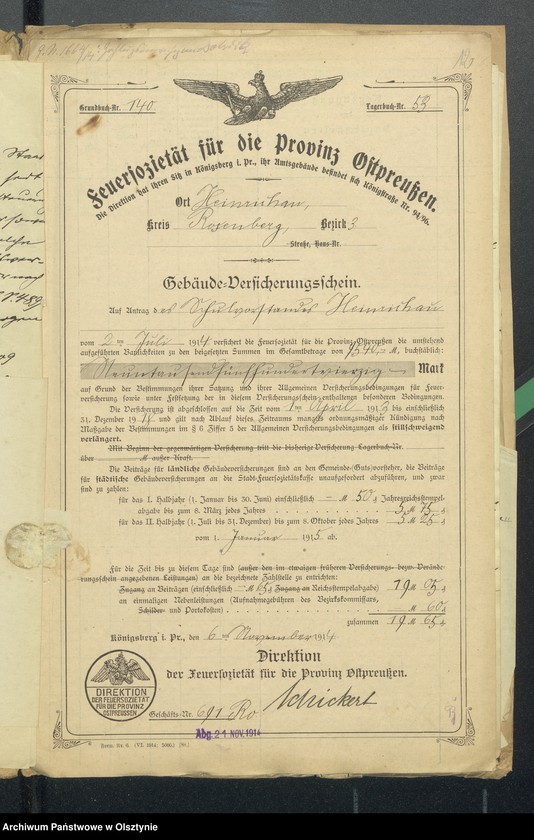 Grundbuch-Nr. 140
Lagerbuch-Nr. 53
Feuersozietät für die Provinz Ostpreußen.
Die Direktion hat ihren Sitz in Königsberg i. Pr., ihr Amtsgebäude befindet sich Königstraße Nr. 94/96.
Ort Heinrichau,
Kreis Rosenberg, Bezirk 3
Straße, Haus-Nr.
Gebäude-Versicherungsschein.
Auf Antrag des Schulvorstandes Heinrichau
vom 2ten Juli 1914 versichert die Feuersozietät für die Provinz Ostpreußen die umstehend
aufgeführten Baulichkeiten zu den beigesetzten Summen im Gesamtbetrage von M, buchstäblich:
Neuntausendfünfhundertvierzig Mark
auf Grund der Bestimmungen ihrer Satzung und ihrer Allgemeinen Versicherungsbedingungen für Feuer-
versicherung sowie unter Festsetzung der in diesem Versicherungsschein enthaltenen besonderen Bedingungen.
Die Versicherung ist abgeschlossen auf die Zeit vom 1ten April 191 bis einschließlich
31. Dezember 19 und gilt nach Ablauf dieses Zeitraums mangels ordnungsmäßiger Kündigung nach
Maßgabe der Bestimmungen im § 6 Ziffer 5 der Allgemeinen Versicherungsbedingungen als stillschweigend
verlängert.
Mit Beginn der gegenwärtigen Versicherung tritt die bisherige Versicherung Lagerbuch-Nr.
über M außer Kraft.
Die Beiträge für ländliche Gebäudeversicherungen sind an den Gemeinde-(Guts)vorsteher, die Beiträge
für städtische Gebäudeversicherungen an die Stadt-Feuersozietätskasse unaufgefordert abzuführen, und zwar
sind zu zahlen:
für das I. Halbjahr (1. Januar bis 30. Juni) einschließlich – M 50 ₰ Jahresreichsstempel-
abgabe bis zum 8. März jedes Jahres 5 M 75 ₰
für das II. Halbjahr (1. Juli bis 31. Dezember) bis zum 8. Oktober jedes Jahres 5 M 25 ₰
vom 1. Januar 1915 ab.
Für die Zeit bis zu diesem Tage sind (außer den im etwaigen früheren Versicherungs- bezw. Verände-
rungsschein angegebenen Leistungen) an die bezeichnete Zahlstelle zu entrichten:
Zugang an Beiträgen (einschließlich – M ₰ Zugang an Reichsstempelabgabe) 19 M 05 ₰
an einmaligen Nebenleistungen (Aufnahmegebühren des Bezirkskommissars,
Schilder- und Portokosten) – M 60 ₰
zusammen 19 M 65 ₰
Königsberg i. Pr., den 6ten November 1914
Direktion
der Feuersozietät für die Provinz Ostpreußen.
Schickert
DIREKTION
DER FEUERSOZIETÄT
FÜR DIE PROVINZ
OSTPREUSSEN
Geschäfts-Nr. 691 Ro
Abg. 21 NOV. 1914
Archiwum Państwowe w Olsztynie